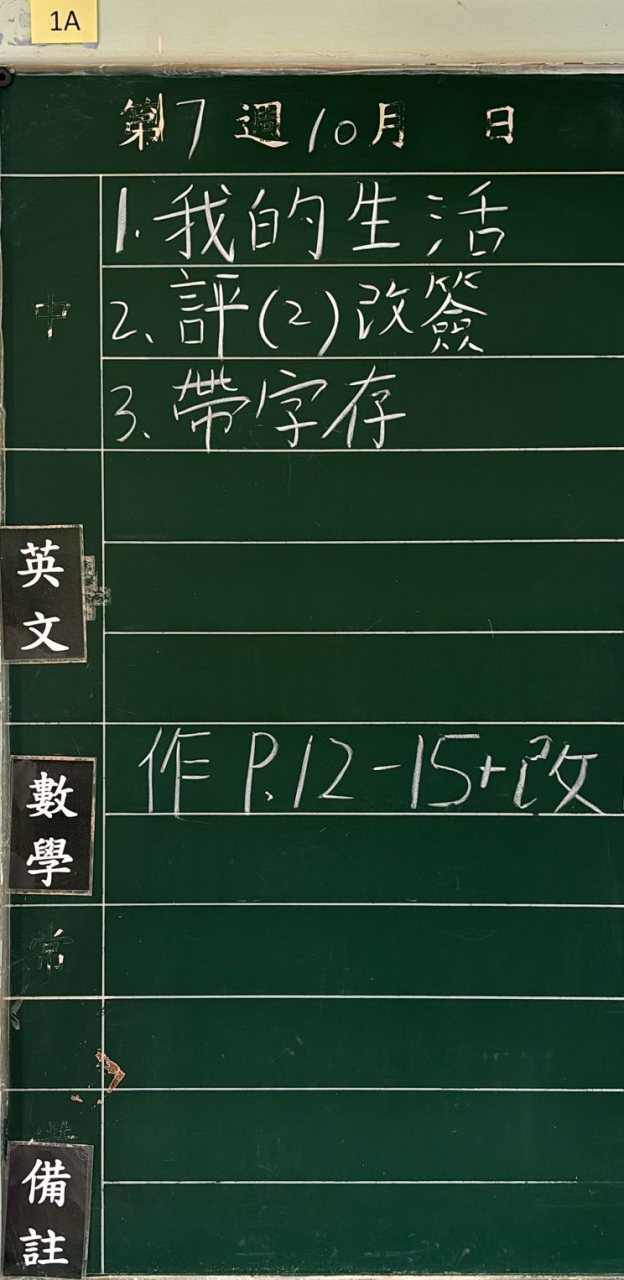 1A
第7週10月 日
中
1.我的生活
2、評(2)改簽
3、帶字存
英文
數學
作 P.12-15+改
常
備註